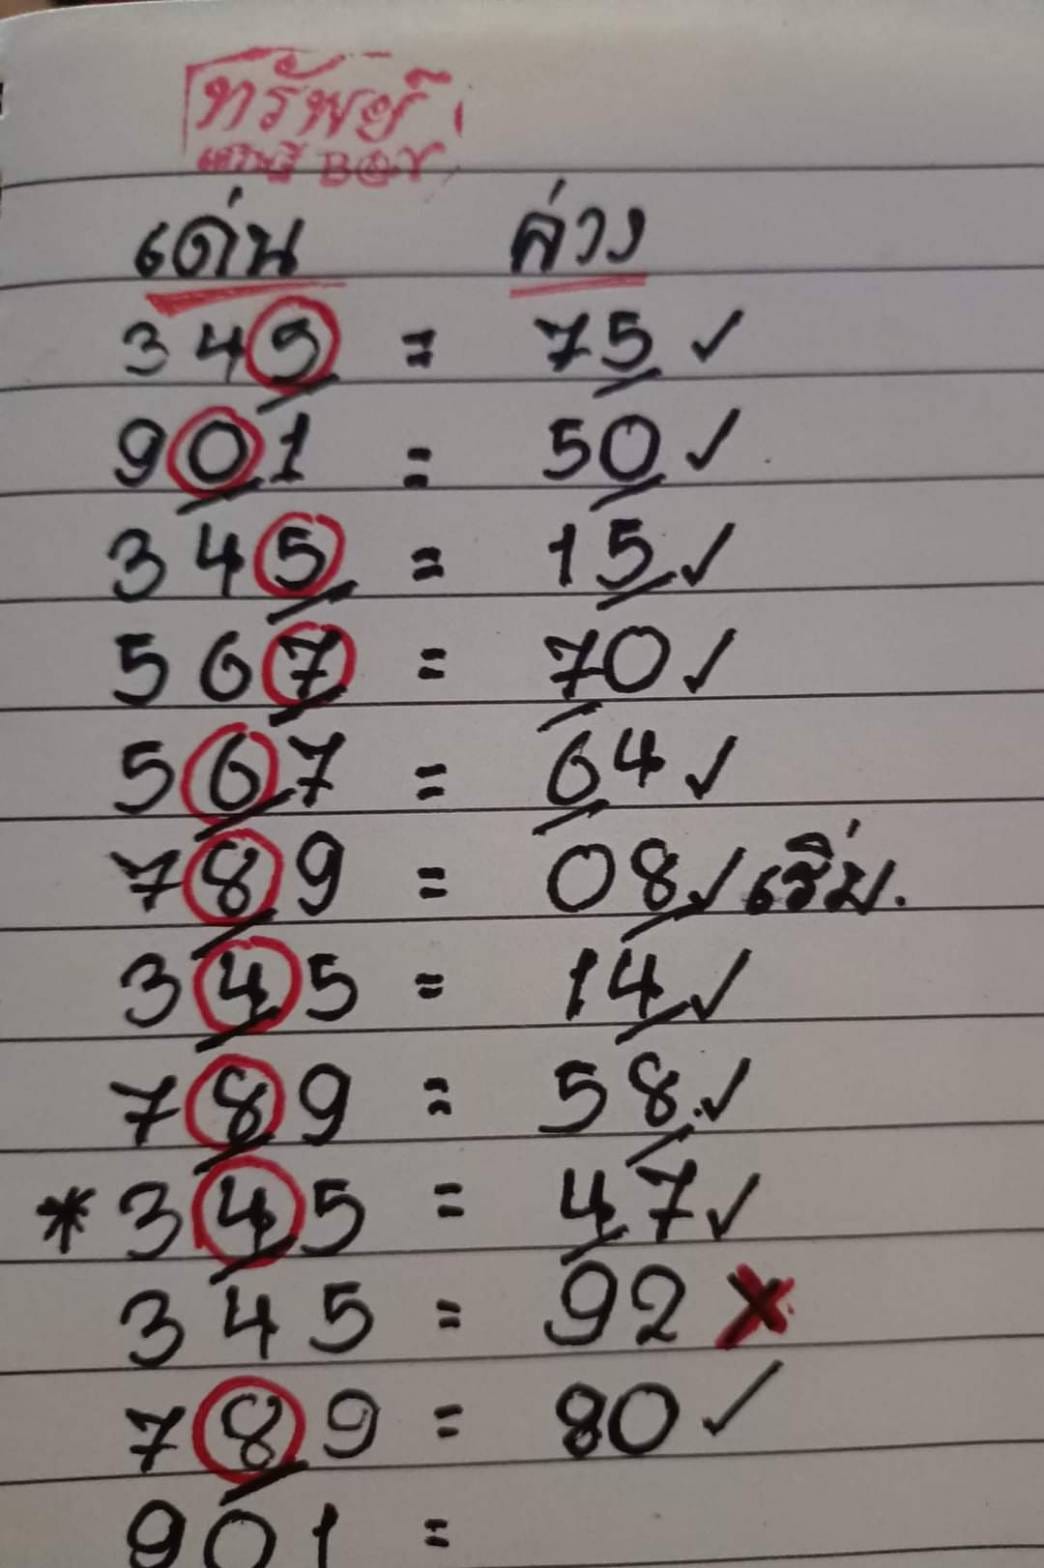 ทรัพย์
BOY
เด่น ล่าง
345 = 75 ✓
901 = 50 ✓
345 = 15 ✓
567 = 70 ✓
567 = 64 ✓
789 = 08 ✓ เริ่ม.
345 = 14 ✓
789 = 58 ✓
* 345 = 47 ✓
345 = 92 ✗
789 = 80 ✓
901 =